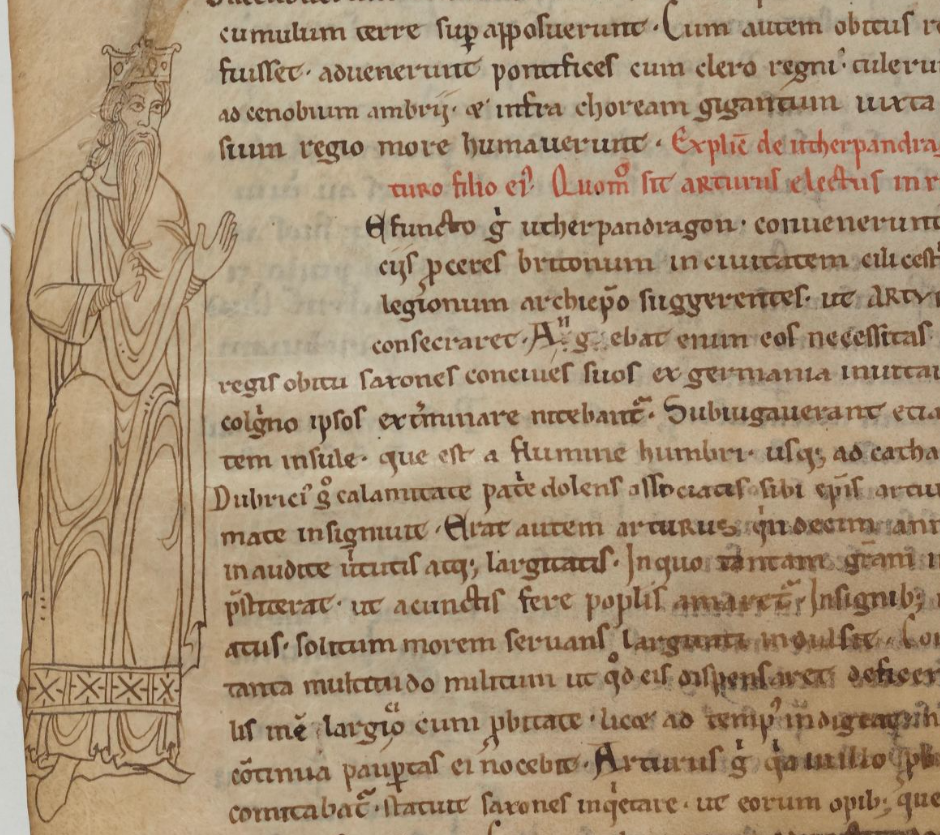 cumulum terre sup̱ apposuerunt · Cum autem obitus re
fuisset · aduenerunt pontifices cum clero regni ⁊ tuleru
ad cenobium ambrij · & infra choream gigantum iuxta
sium regio more humauerunt · Explič de utherpandrag
turo filio ei᷒ Quom̊ sit arturus electus in r
Efuncto g̊ utherpandragon · conuenerunt
cijs p̱ceres britonum in ciuitatem cilicest
legionum archiep̄o suggerentes · ut ARTV
consecraret · ebat enim eos necessitas
regis obitu saxones conciues suos ex germania inuitau
ipsos ext̄minare nitebant᷑ · Subiugauerant etia
tem insule · que est a flumine humbri · usq; ad catha
Dubrici᷒ g̊ calamitate pat̄e dolens associatis sibi ep̄is artu
mate insigniuit · Erat autem arturus q̇ndecim ann
inaudite ūtutis atq; largitatis · Inquo tantam gr̄am
p̄stiterat · ut acunctis fere poplis amaret᷑ · Insignib;
atus · solitum morem seruans largitati indulsit · Co
tanta multitudo militum ut q̊d eis dispensaret deficer
lis inē largio cum p̱bitate · licet ad temp᷒ indigeat
cōtinua paup̱tas ei nocebit · Arturus g̊ q̇a in illo p̱b
comitabat᷑ · statuit saxones inq̇etare · ut eorum opib; que